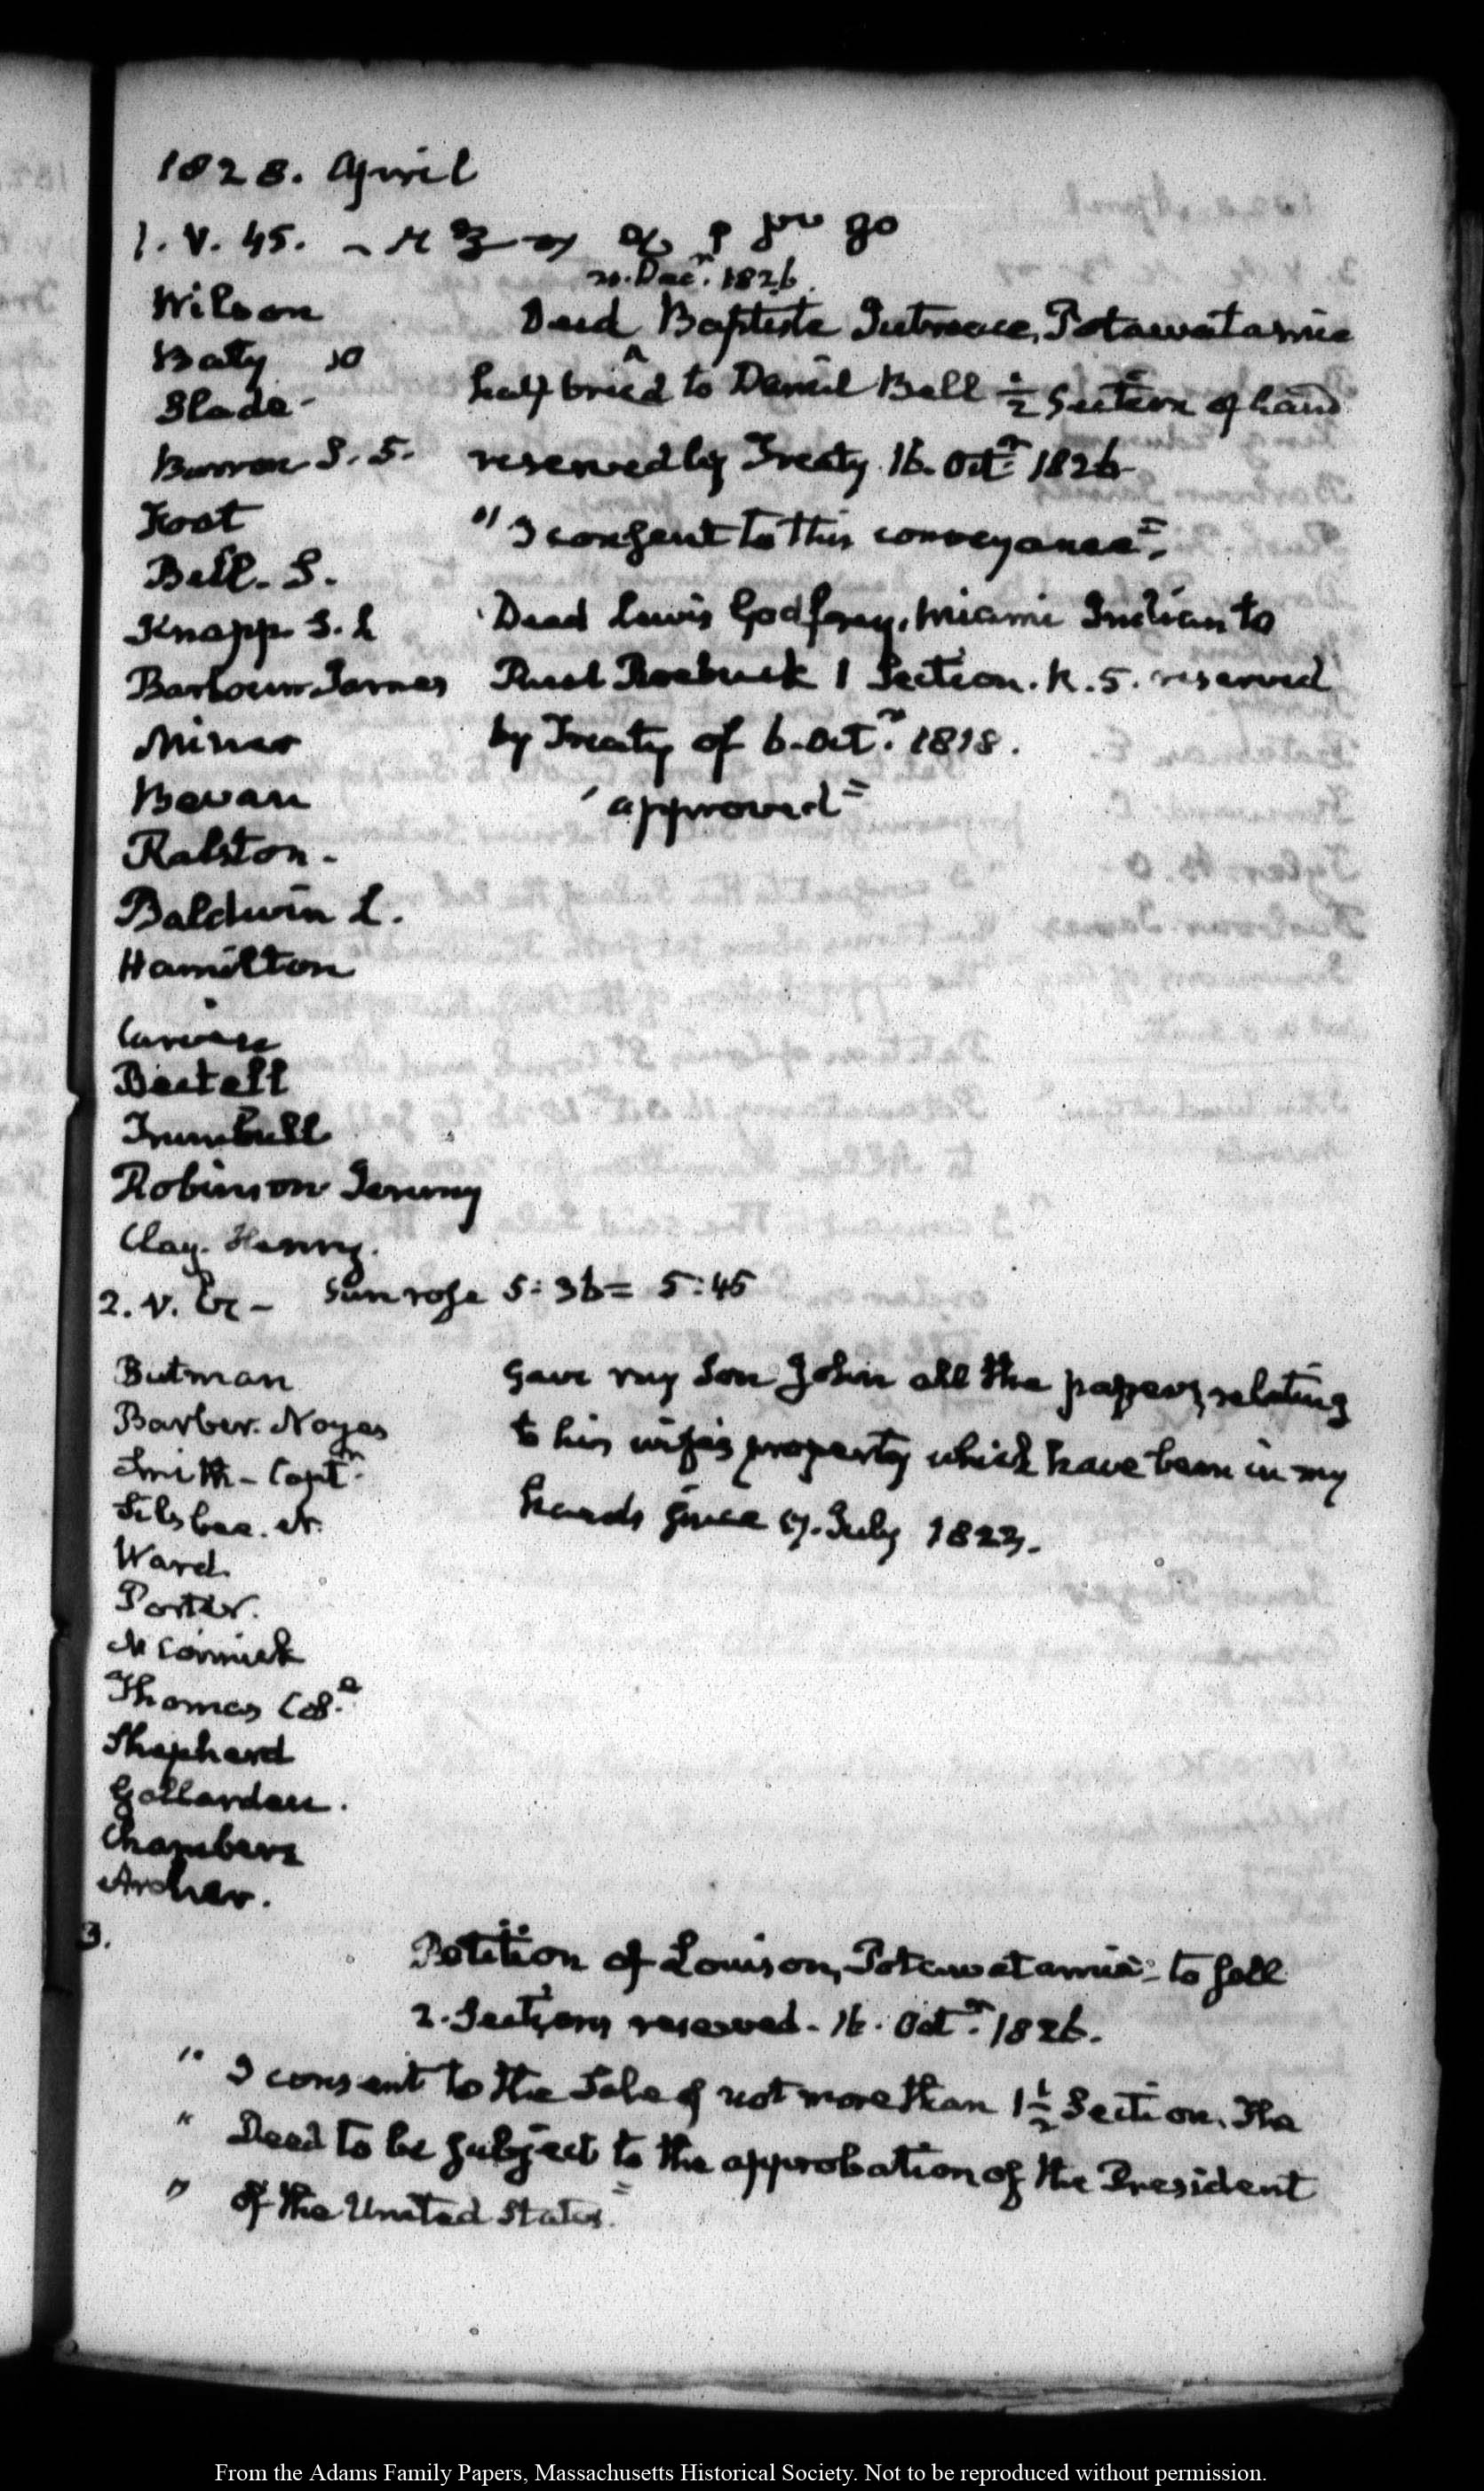 1828. April
1. V. 45.
20. Decr. 1826.
Wilson
Baty
Slade -
Burron S. S.
Foot
Bell. S.
Knapp. S. L
Barbour James
Miner
Bevan
Ralston -
Baldwin L.
Hamilton
Bectell
Trumbull
Robinson Jeremy
Clay. Henry.
Deed Baptiste Potawatamie
half breed to Daniel Bell ½ Section of land
reserved by Treaty 16. Octr. 1826
" I consent to this conveyance"
Deed Lewis Godfrey, Miami Indian to
Roebuck 1 Section. N. 5. reserved
by Treaty of 6. Octr. 1818.
"approved"
2. V. Sun rose 5:36 = 5:45
Butman
Barber. Noyes
Smith - Captn.
Silsbee. N.
Ward.
Porter.
McCormick
Thomas
Shepherd
Chambers
Archer.
Gave my Son John all the papers, relating
to his wife's property which have been in my
hands since July 1823.
3.
Petition of Louison, Potawatamie - to sell
2. Sections reserved - 16. Octr. 1826.
" I consent to the Sale of not more than 1½ Section. The
" Deed to be subject to the approbation of the President
" of the United States."
From the Adams Family Papers, Massachusetts Historical Society. Not to be reproduced without permission.